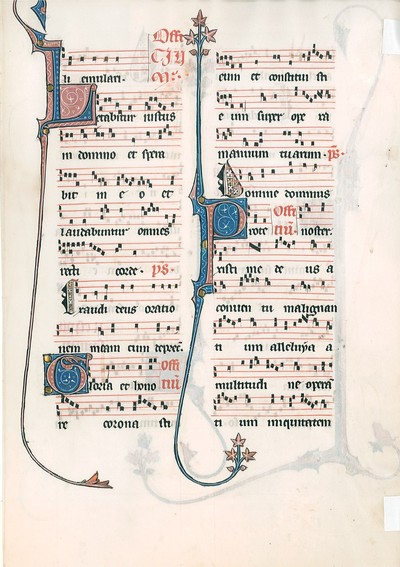 Offi
li emulari.
Letabitur iustus
in domino et spera
bit in e o et
laudabuntur omnes
recti corde. ps.
Exaudi deus oratio
nem meam cum deprec.
Offi
Gloria et hono tiu
re corona sti
eum et constitui sti
e um super ope ra
manuum tuarum. ps.
Domine dominus
Offi
tiu. noster.
Prote
xisti me de us a
conuen tu malignan
ti um alleluya a
multitudi ne opera
ti um iniquitatem